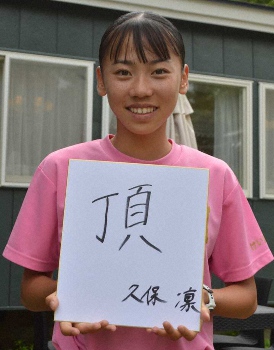 頂
久保 凛